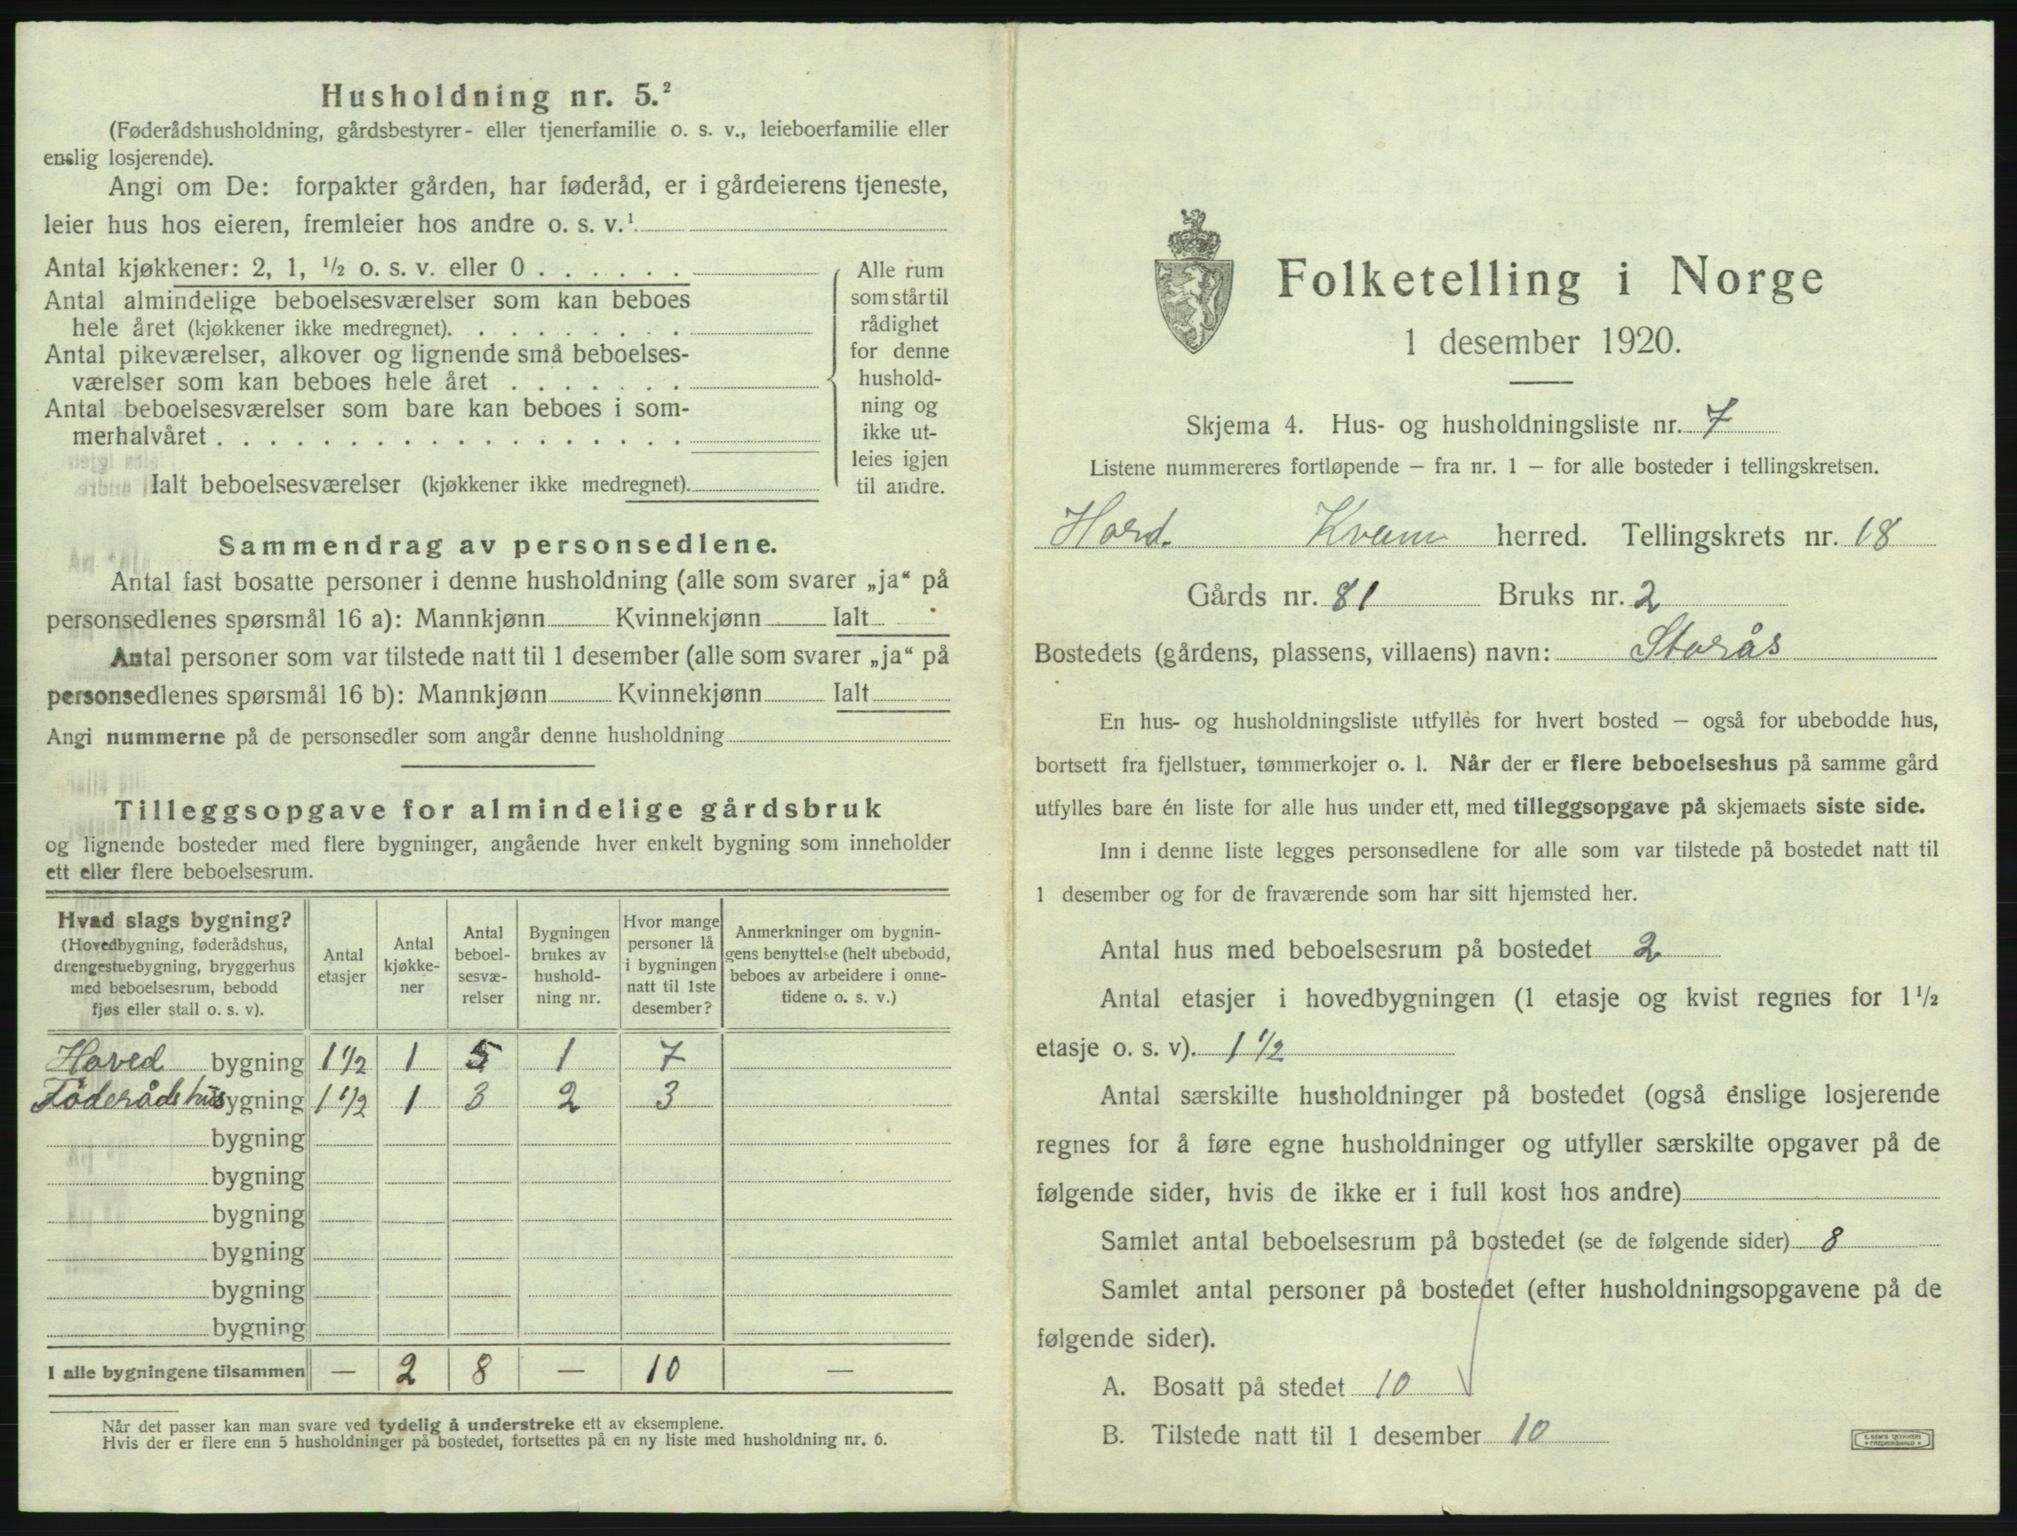 Husholdning nr. 5.²
(Føderådshusholdning, gårdsbestyrer- eller tjenerfamilie o. s. v., leieboerfamilie eller
enslig losjerende).
Angi om De: forpakter gården, har føderåd, er i gårdeierens tjeneste,
leier hus hos eieren, fremleier hos andre o. s. v.¹
Antal kjøkkener: 2, 1, ½ o. s. v. eller 0 . . . . . .
Antal almindelige beboelsesværelser som kan beboes
hele året (kjøkkener ikke medregnet). . . . . . . . .
Antal pikeværelser, alkover og lignende små beboelses-
værelser som kan beboes hele året . . . . . . .
Antal beboelsesværelser som bare kan beboes i som-
merhalvåret . . . . . . . . . . . . . . . . . .
Ialt beboelsesværelser (kjøkkener ikke medregnet).
Alle rum
som står til
rådighet
for denne
hushold-
ning og
ikke ut-
leies igjen
til andre.
Sammendrag av personsedlene.
Antal fast bosatte personer i denne husholdning (alle som svarer „ja“ på
personsedlenes spørsmål 16 a): Mannkjønn Kvinnekjønn Ialt
Antal personer som var tilstede natt til 1 desember (alle som svarer „ja“ på
personsedlenes spørsmål 16 b): Mannkjønn Kvinnekjønn Ialt
Angi nummerne på de personsedler som angår denne husholdning
Tilleggsopgave for almindelige gårdsbruk
og lignende bosteder med flere bygninger, angående hver enkelt bygning som inneholder
ett eller flere beboelsesrum.
Hvad slags bygning?
(Hovedbygning, føderådshus,
drengestuebygning, bryggerhus
med beboelsesrum, bebodd
fjøs eller stall o. s. v).
Antal
etasjer
Antal
kjøkke-
ner
Antal
beboel-
sesvæ-
relser
Bygningen
brukes av
hushold-
ning nr.
Hvor mange
personer lå
i bygningen
natt til 1ste
desember?
Anmerkninger om bygnin-
gens benyttelse (helt ubebodd,
beboes av arbeidere i onne-
tidene o. s. v.)
Hoved bygning 1 1/2 1 5 1 7
Föderådshus bygning 1 1/2 1 3 2 3
bygning
bygning
bygning
bygning
bygning
bygning
I alle bygningene tilsammen — 2 8 — 10 —
Når det passer kan man svare ved tydelig å understreke ett av eksemplene.
Hvis der er flere enn 5 husholdninger på bostedet, fortsettes på en ny liste med husholdning nr. 6.
Folketelling i Norge
1 desember 1920.
Skjema 4. Hus- og husholdningsliste nr. 7
Listene nummereres fortløpende – fra nr. 1 – for alle bosteder i tellingskretsen.
Hord. Kvam herred. Tellingskrets nr. 18
Gårds nr. 81 Bruks nr. 2
Bostedets (gårdens, plassens, villaens) navn: Storås
En hus- og husholdningsliste utfylles for hvert bosted – også for ubebodde hus,
bortsett fra fjellstuer, tømmerkojer o. l. Når der er flere beboelseshus på samme gård
utfylles bare én liste for alle hus under ett, med tilleggsopgave på skjemaets siste side.
Inn i denne liste legges personsedlene for alle som var tilstede på bostedet natt til
1 desember og for de fraværende som har sitt hjemsted her.
Antal hus med beboelsesrum på bostedet 2
Antal etasjer i hovedbygningen (1 etasje og kvist regnes for 1½
etasje o. s. v). 1 1/2
Antal særskilte husholdninger på bostedet (også enslige losjerende
regnes for å føre egne husholdninger og utfyller særskilte opgaver på de
følgende sider, hvis de ikke er i full kost hos andre)
Samlet antal beboelsesrum på bostedet (se de følgende sider) 8
Samlet antal personer på bostedet (efter husholdningsopgavene på de
følgende sider).
A. Bosatt på stedet 10
B. Tilstede natt til 1 desember 10